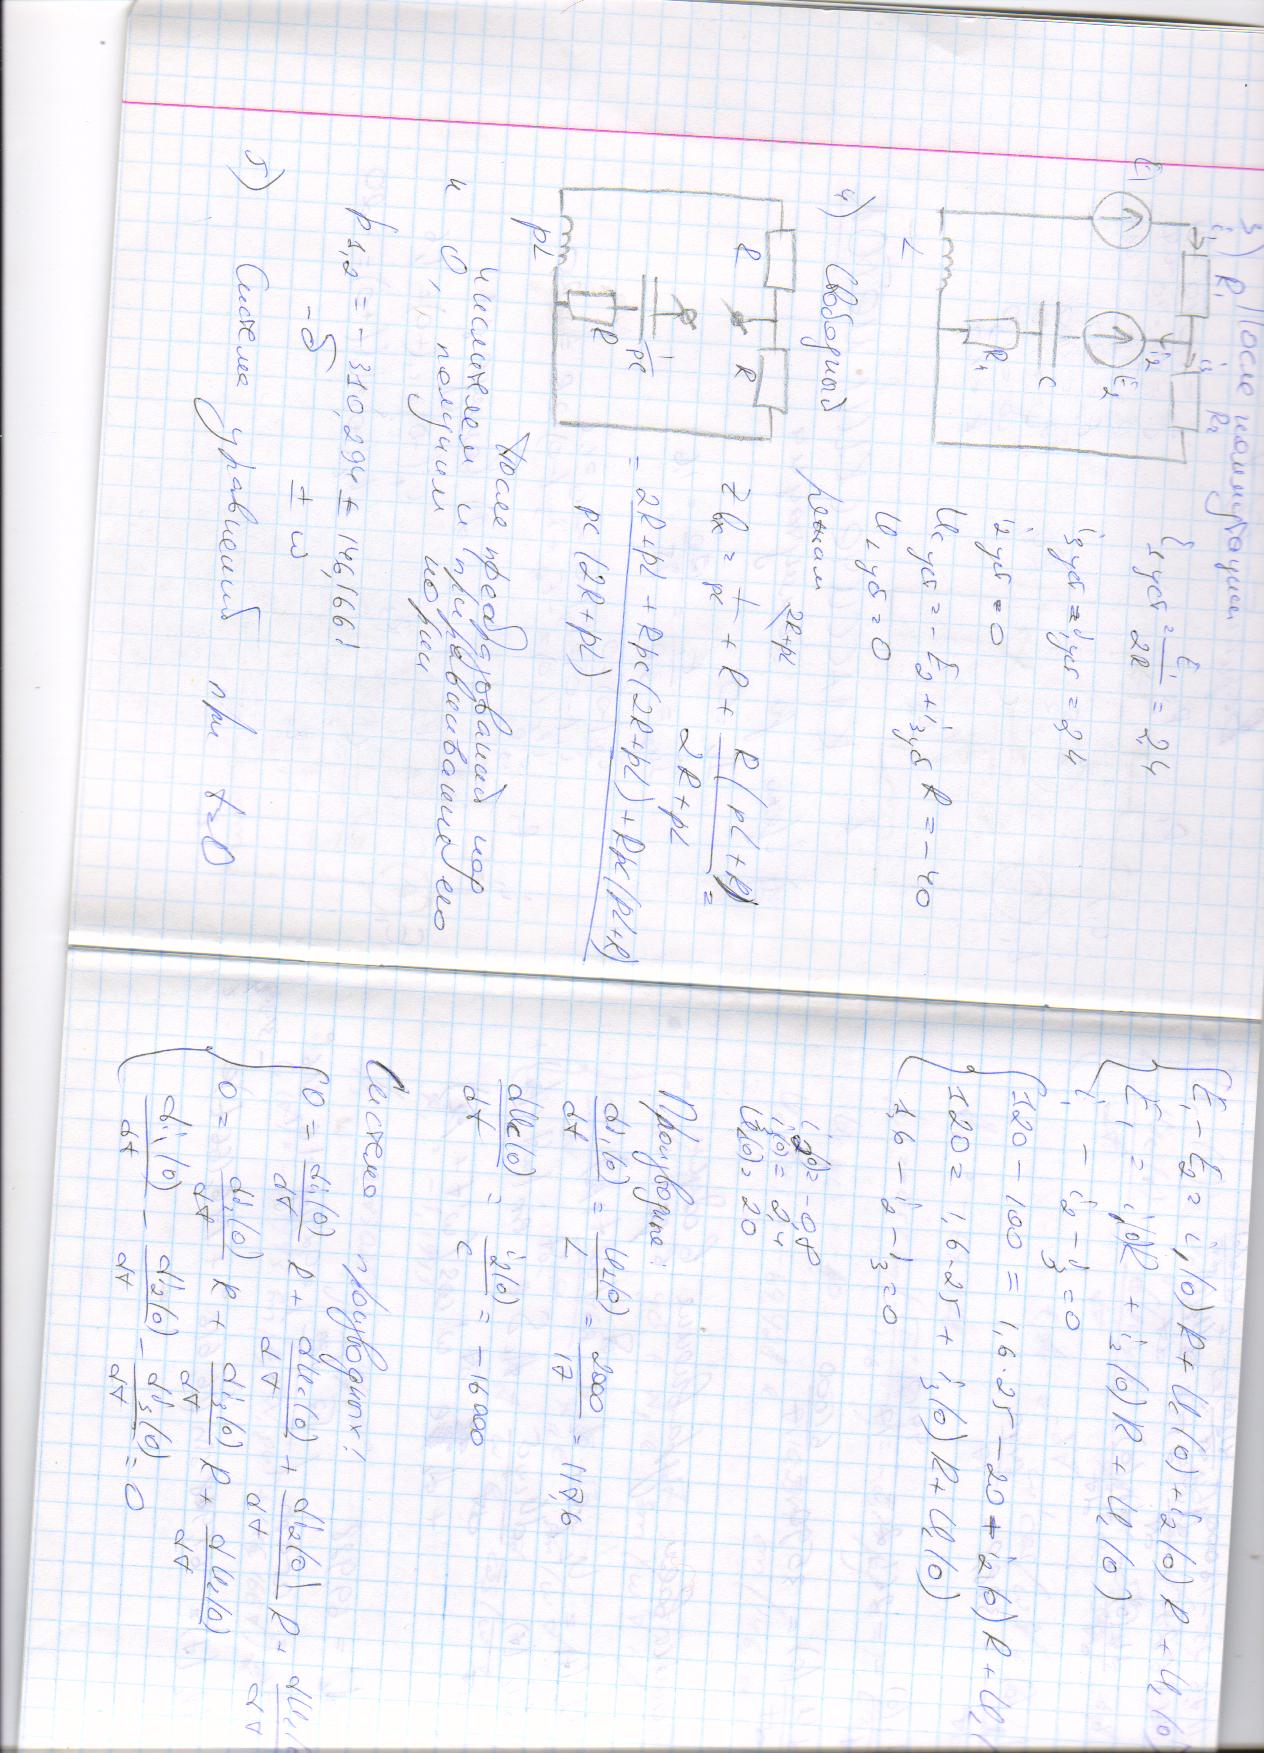 3) После коммутации
E₁ i₁ R₁ i₃ R₂
i₂
E₂
C
R₁
L
i₁ уст = E₁/2R = 2,4
i₃ уст = i₁ уст = 2,4
i₂ уст = 0
Uc уст = -E₂ + i₃ уст R = -40
UL уст = 0
4) Свободный режим
R R
1/pC
R
pL
2R+pL
Zвх = 1/pC + R + R(pL+R)/(2R+pL) =
= (2R+pL + RpC(2R+pL) + RpC(pL+R))/(pC(2R+pL))
После преобразований над
числителем и приравнивания его
к 0, получим корни
p1,2 = -310,294 ± 146,166i
-δ ± ω
5) Система уравнений при t=0
E₁ - E₂ = i₁(0)R + Uc(0) + i₂(0)R + UL(0)
E₁ = i₁(0)R + i₃(0)R + UL(0)
i₁ - i₂ - i₃ = 0
120 - 100 = 1,6·25 - 20 + i₂(0)R + UL(
120 = 1,6·25 + i₃(0)R + UL(0)
1,6 - i₂ - i₃ = 0
i₂(0) = -0,8
i₃(0) = 2,4
UL(0) = 20
Производные:
di₁(0)/dt = UL(0)/L = 2000/17 = 117,6
dUc(0)/dt = i₂(0)/C = -16000
Система производных:
0 = di₁(0)/dt R + dUc(0)/dt + di₂(0)/dt R + dUL(0)/dt
0 = di₁(0)/dt R + di₃(0)/dt R + dUL(0)/dt
di₁(0)/dt - di₂(0)/dt - di₃(0)/dt = 0